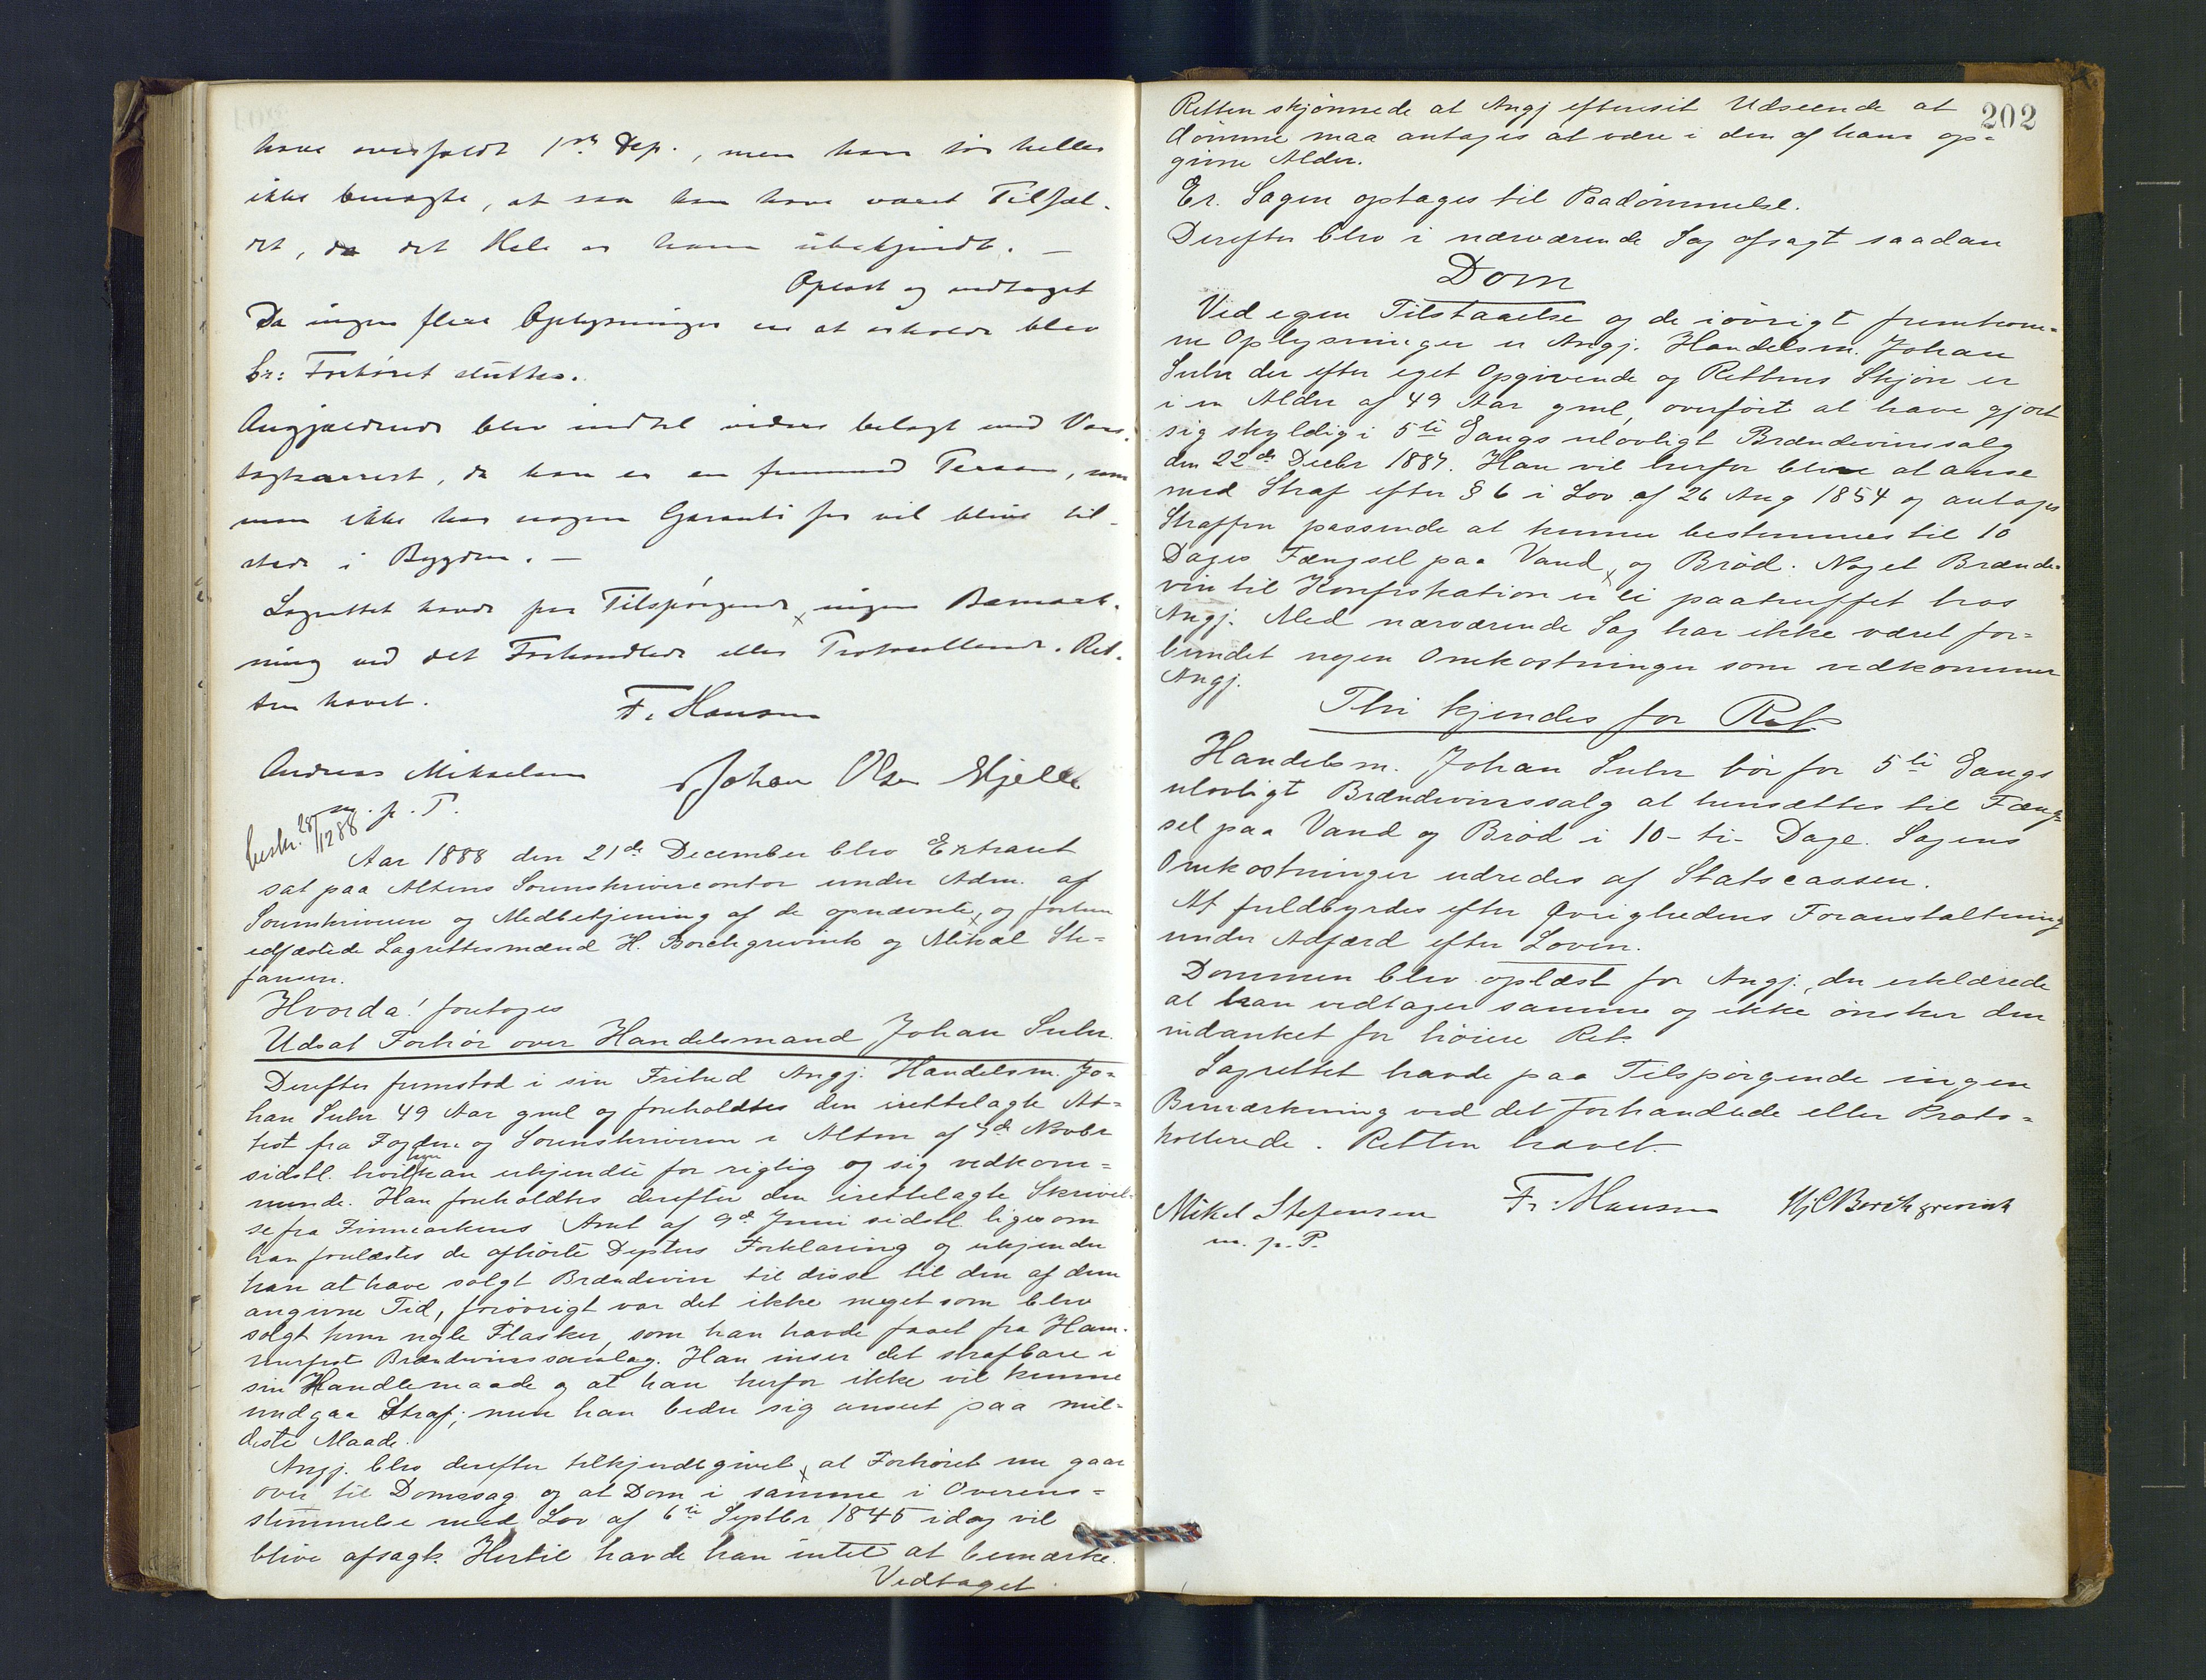 have overfaldt 1ste Dep., men han tør heller
ikke benægte, at saa kan have været Tilfæl-
det, da det Hele er ham ubekjendt. —
Oplæst og vedtaget
Da ingen flere Oplysninger er at erholde blev
br: Forhøret sluttes.
Angjældende blev indtil videre belagt med Vare-
tægtsarrest, da han er en fremmed Person, som
man ikke har nogen Garanti for vil blive til-
stede i Bygden. —
Lagrettet havde paa Tilspørgende ingen Bemærk-
ning ved det Forhandlede eller Protocollerede. Ret-
ten hævet.
F. Hansen
Andreas Mikaelsen
Johan Olsen Hjelle
m. p. P.
beskr. 28/12 88
Aar 1888 den 21de December blev Extraret
sat paa Altens Sorenskrivercontor under Adm. af
Sorenskriveren og Medbetjening af de opnævnte og forhen
edfæstede Lagrettesmænd H. Borchgrevink og Mikal Ste-
fansen.
Hvorda! foretoges
Udsat Forhør over Handelsmand Johan Suhr.
Derefter fremstod i sin Frihed Angj. Handelsm. Jo-
han Suhr 49 Aar gml og foreholdtes den irettelagte At-
test fra Fogden og Sorenskriveren i Alten af 7de Novbr
sidstl. hvilken han erkjendte for rigtig og sig vedkom-
mende. Han foreholdtes derefter den irettelagte Skrivel-
se fra Finmarkens Amt af 9de Juni sidstl. ligesom
han forelæstes de afhørte Depters Forklaring og erkjender
han at have solgt Brændevin til disse til den af dem
angivne Tid, forøvrigt var det ikke meget som blev
solgt kun nogle Flasker, som han havde faaet fra Ham-
merfest Brændevinssamlag. Han inser det strafbare i
sin Handlemaade og at han herfor ikke vil kunne
undgaa Straf; men han beder sig anseet paa mil-
deste Maade.
Angj. blev derefter tilkjendegivet at Forhøret nu gaar
over til Domssag og at Dom i samme i Overens-
stemmelse med Lov af 6te Septbr 1845 idag vil
blive afsagt. Hertil havde han intet at bemærke.
Vedtaget
202
Retten skjønnede at Angj efter sit Udseende at
dømme maa antages at være i den af ham op-
givne Alder.
Er. Sagen optages til Paadømmelse.
Derefter blev i nærværende Sag afsagt saadan
Dom
Ved egen Tilstaaelse og de iøvrigt fremkom-
ne Oplysninger er Angj. Handelsm. Johan
Suhr der efter eget Opgivende og Rettens Skjøn er
i en Alder af 49 Aar gml, overført at have gjort
sig skyldig i 5te Gangs ulovligt Brændevinssalg
den 22de Decbr 1887. Han vil herfor blive at anse
med Straf efter § 6 i Lov af 26 Aug 1854 og antages
Straffen passende at kunne bestemmes til 10
Dages Fængsel paa Vand og Brød. Noget Brænde-
vin til Konfiskation er ei paatruffet hos
Angj. Med nærværende Sag har ikke været for-
bundet nogen Omkostninger som vedkommer
Angj.
Thi kjendes for Ret
Handelsm. Johan Suhr bør for 5te Gangs
ulovligt Brændevinssalg at hensættes til Fæng-
sel paa Vand og Brød i 10 - ti - Dage. Sagens
Omkostninger udredes af Statscassen.
At fuldbyrdes efter Øvrighedens Foranstaltning
under Adfærd efter Loven.
Dommen blev oplæst for Angj., der erklærede
at han vedtager samme og ikke ønsker den
indanket for høiere Ret.
Lagrettet havde paa Tilspørgende ingen
Bemærkning ved det forhandlede eller Proto-
kollerede. Retten hævet.
Mikel Stefensen
Fr. Hansen
HjCBorchgrevink
m. p. P.